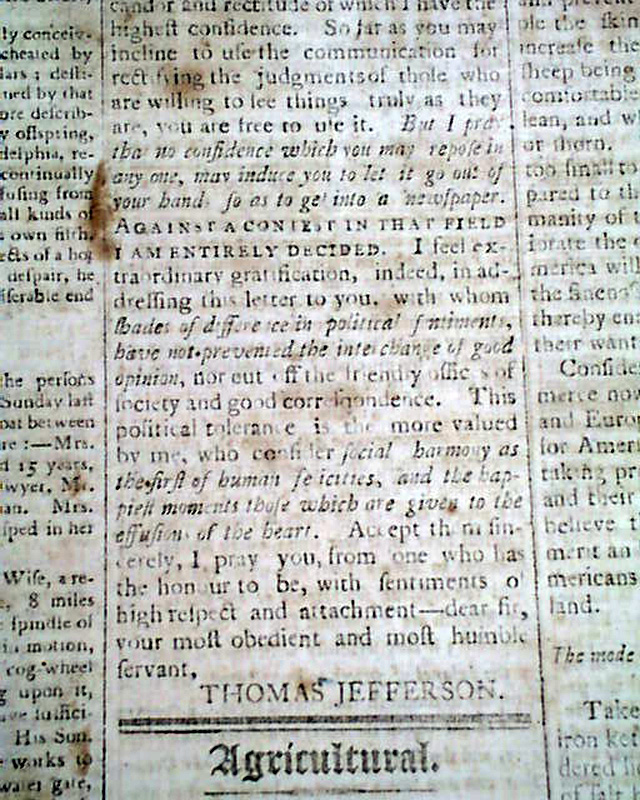 ly conceiv-
cheated by
ned by that
ore describ-
y offspring,
delphia, re-
continually
fusing from
all kinds of
own filth.
ects of a hog
despair, he
iserable end
he persons
Sunday last
oat between
re :—Mrs.
d 15 years,
wyer, Mr.
an. Mrs.
ped in her
Wife, a re-
, 8 miles
spindle of
in motion,
cog-wheel
g upon it,
ave suffici-
His Son.
works to
water gate,
candor and rectitude of which I have the
higheſt confidence. So far as you may
incline to uſe the communication for
rectifying the judgments of thoſe who
are willing to ſee things truly as they
are, you are free to uſe it. But I pray
that no confidence which you may repoſe in
any one, may induce you to let it go out of
your hands ſo as to get into a newſpaper.
AGAINST A CONTEST IN THAT FIELD
I AM ENTIRELY DECIDED. I feel ex-
traordinary gratification, indeed, in ad-
dreſſing this letter to you, with whom
ſhades of difference in political ſentiments,
have not prevented the interchange of good
opinion, nor cut off the friendly offices of
ſociety and good correſpondence. This
political tolerance is the more valued
by me, who conſider ſocial harmony as
the firſt of human felicities, and the hap-
pieſt moments thoſe which are given to the
effuſions of the heart. Accept them ſin-
cerely, I pray you, from one who has
the honour to be, with ſentiments of
high reſpect and attachment—dear ſir,
your moſt obedient and moſt humble
ſervant,
THOMAS JEFFERSON.
Agricultural.
ple the skin
increase the
sheep being
comfortable
lean, and wh
or shorn.
too small to
pared to th
manity of
merica will
the fineness
thereby en
their want
Conside
merce now
and Europ
for Amer
taking pr
and their
believe t
merit an
mericans
land.
The mode
Take
iron ket
dered